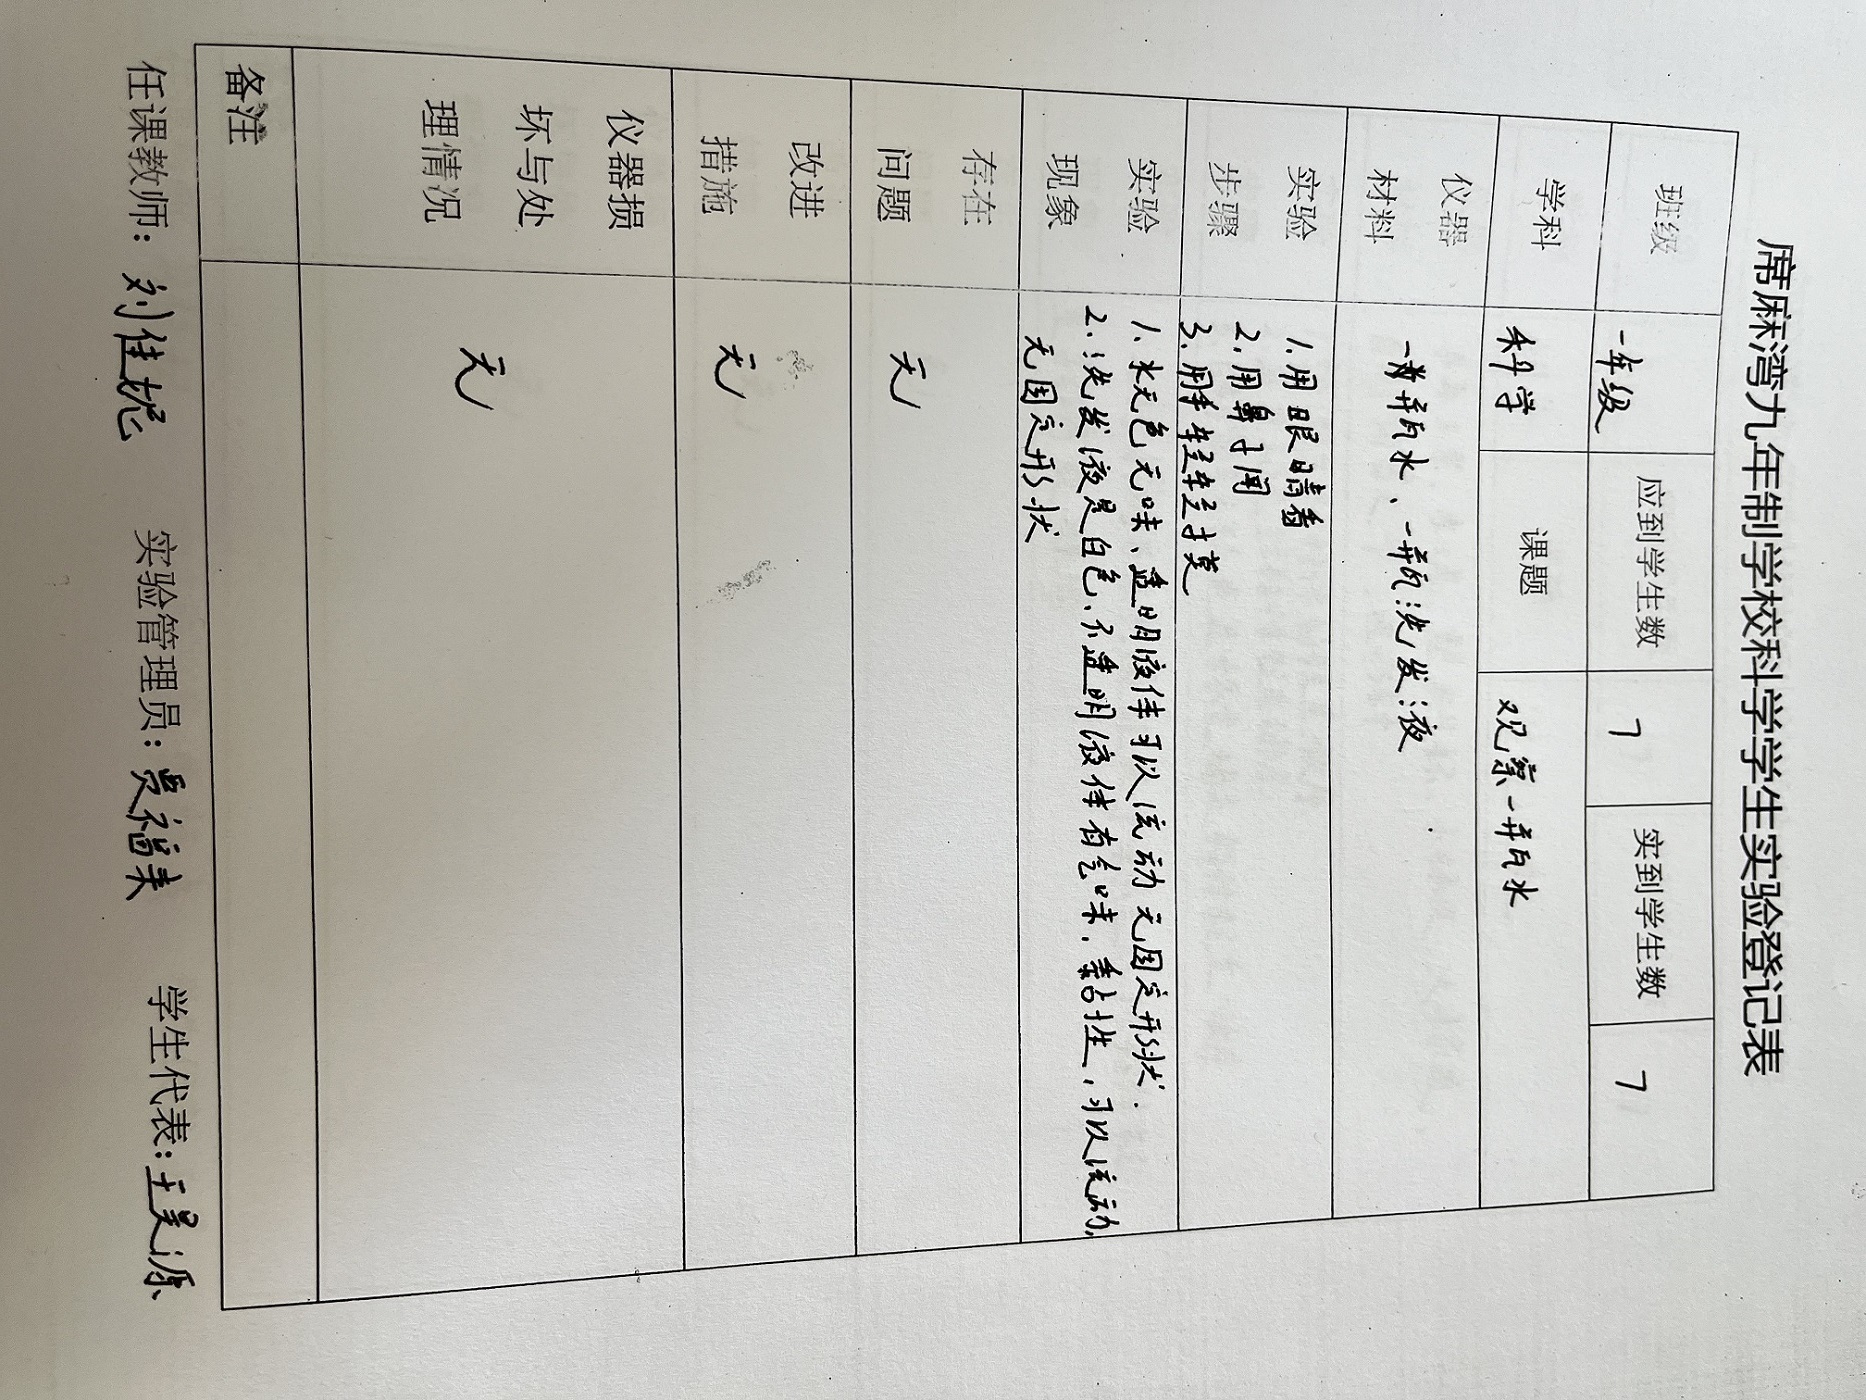 席麻湾九年制学校科学学生实验登记表
班级 一年级 应到学生数 7 实到学生数 7
学科 科学 课题 观察一瓶水
仪器
材料
一瓶水、一瓶洗发液
实验
步骤
1.用眼睛看
2.用鼻子闻
3.用手轻轻摸
实验
现象
1.水无色无味、透明液体可以流动无固定形状.
2.洗发液是白色、不透明液体有气味,黏性,可以流动,
无固定形状
存在
问题
无
改进
措施
无
仪器损
坏与处
理情况
无
备注
任课教师: 刘佳妮 实验管理员: 贾福来 学生代表: 王昊源